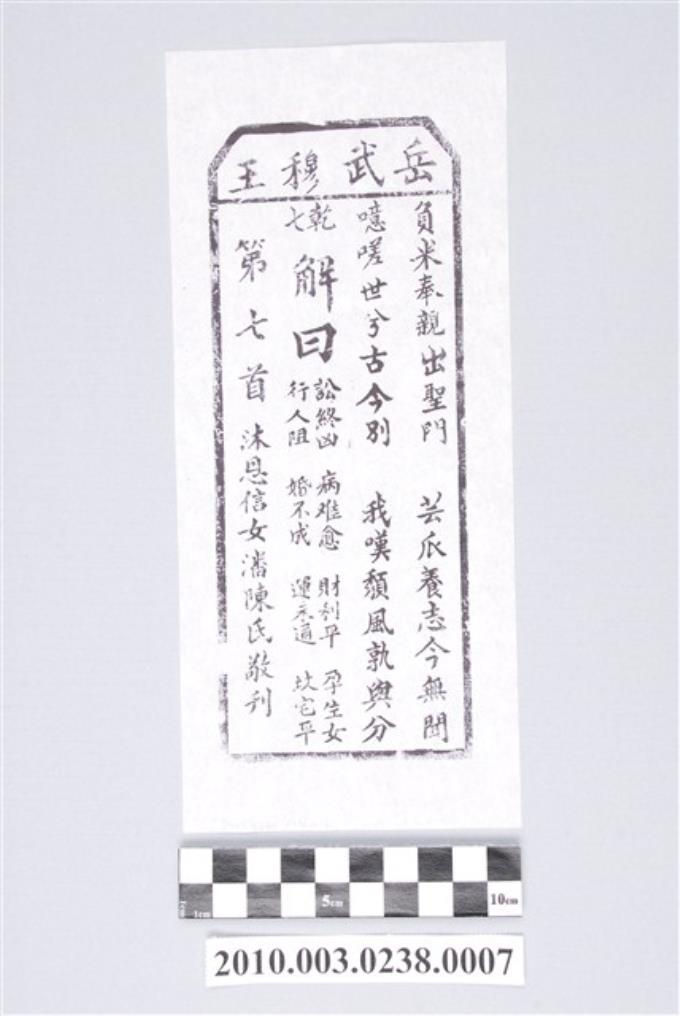 岳武穆王
負米奉親出聖門　芸瓜養志今無聞
噫嗟世兮古今別　我嘆頹風孰與分
乾七
解曰
訟終凶　病难愈　財利平　孕生女
行人阻　婚不成　運未通　坟宅平
第七首　沐恩信女潘陳氏敬刋
1cm 5cm 10cm
2010.003.0238.0007